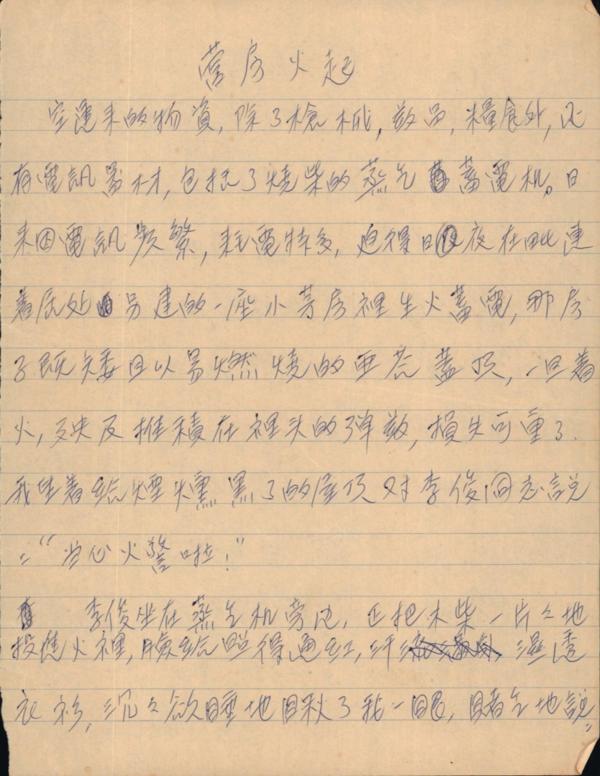 营房火起
空運来的物資，除了槍械，数品，糧食外，还
有電訊器材，包括了燒柴的蒸气蓄電机。日
来因電訊頻繁，耗電特多，迫得日夜在毗連
着居处另建的一座小茅房裡生火蓄電，那房
子既矮且以易燃燒的亚荅蓋頂，一旦着
火，殃及堆積在裡头的弹数，損失可重了。
我望着給煙燻黑了的屋頂対李俊同志説
："当心火警啦！"
李俊坐在蒸气机旁边，正把木柴一片々地
投進火裡，臉給照得通红，汗濕透
衣衫，沉々欲睡地瞅了我一眼，賭气地説：